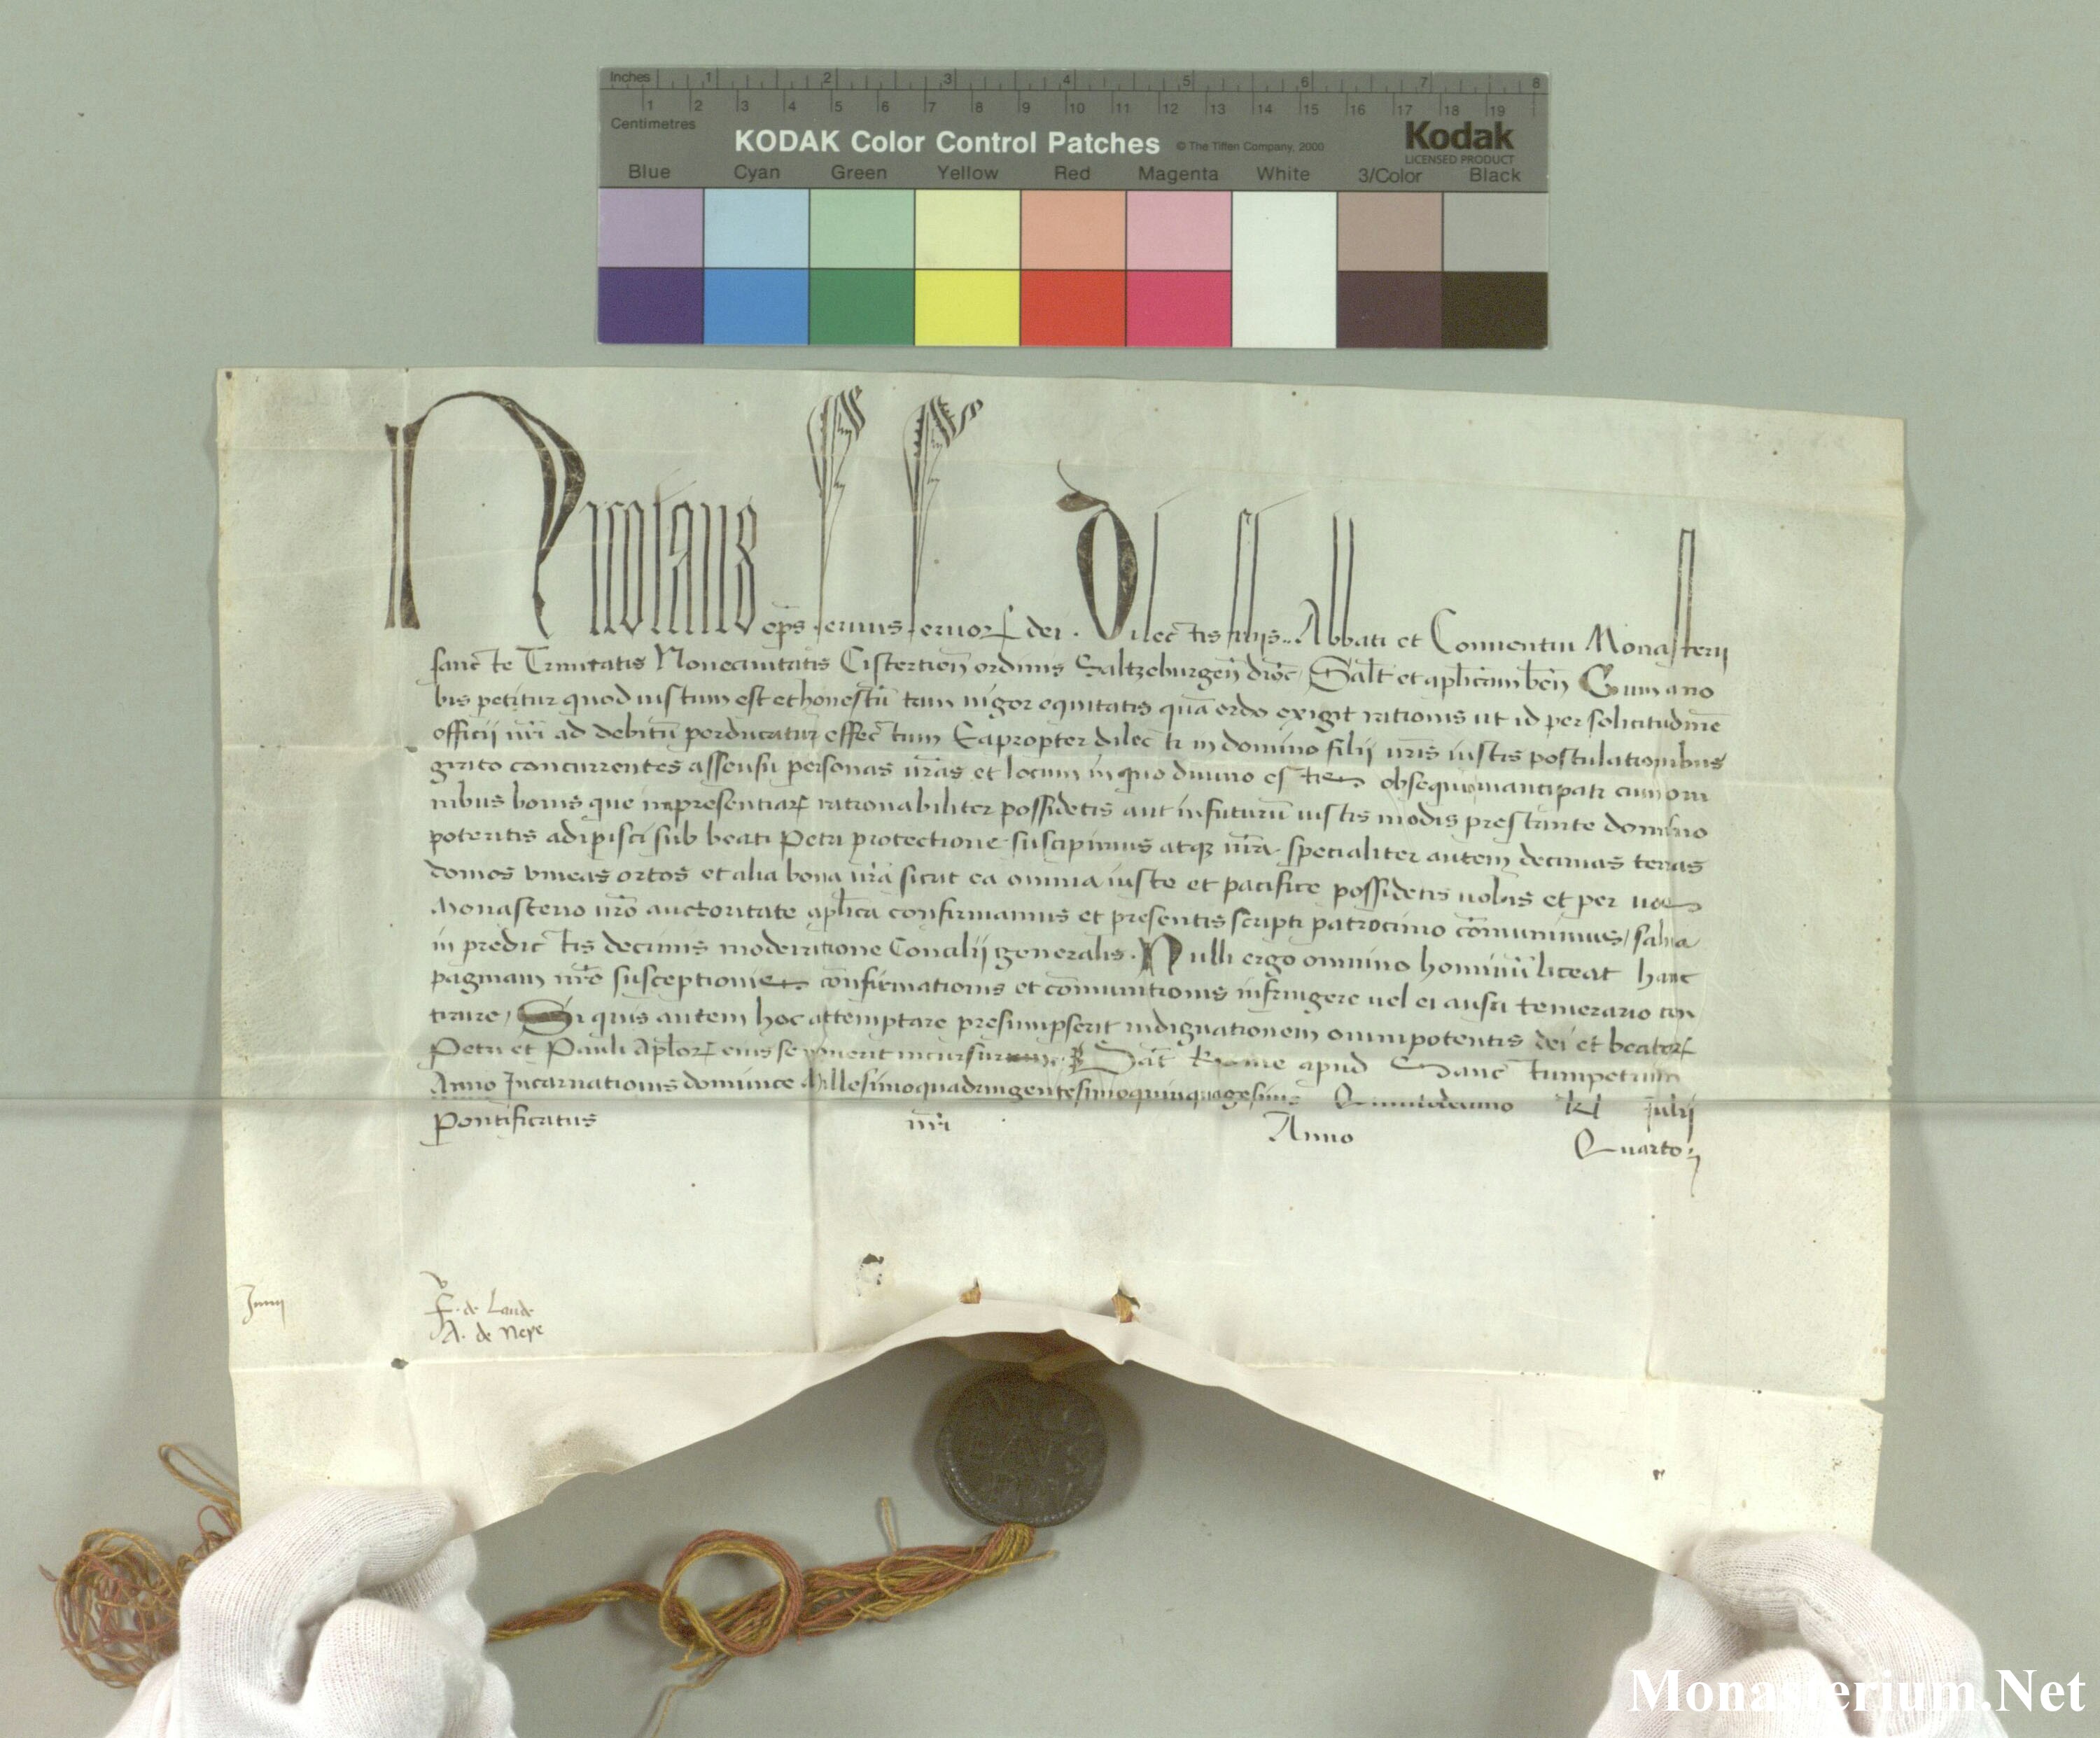 Inches 1 2 3 4 5 6 7 8
1 2 3 4 5 6 7 8 9 10 11 12 13 14 15 16 17 18 19
Centimetres
KODAK Color Control Patches © The Tiffen Company, 2000 Kodak
LICENSED PRODUCT
Blue Cyan Green Yellow Red Magenta White 3/Color Black
Nicolaus ep̄s seruus seruorꝝ dei . Dilectis filijs .. Abbati et Conuentui Monasterij
sancte Trinitatis Nouecivitatis Cistertien̄ ordinis Saltzeburgen̄ dioc̄ Salt̄ et aplicam ben̄ Cum a no
bis petitur quod iustum est et honestū tam uigor equitatis quā ordo exigit rationis ut id per solicitudinē
officij nr̄i ad debitū perducatur effectum Eapropter dilecti in domino filij ur̄is iustis postulationibus
grato concurrentes assensu personas ur̄as et locum in quo diuino estis obsequio mancipati cum om
nibus bonis que inpresentiarꝝ rationabiliter possidetis aut infuturū iustis modis prestante domino
poteritis adipisci sub beati Petri protectione suscipimus atqꝫ nr̄a . specialiter autem decimas terras
domos vineas ortos et alia bona ur̄a sicut ea omnia iuste et pacifice possidetis uobis et per uos
Monasterio ur̄o auctoritate aplica confirmamus et presentis scripti patrocinio cōmunimus / salua
in predictis decimis moderatione Concilij generalis . Nulli ergo omnino hominū liceat hanc
paginam nr̄e susceptionis confirmationis et cōmunitionis infringere uel ei ausu temerario con
traire / Si quis autem hoc attemptare presumpserit indignationem omnipotentis dei et beatorꝝ
Petri et Pauli Aplorꝝ eius se nouerit incursurum . Dat̄ Rome apud Sanctumpetrum
Anno Incarnationis dominice Millesimoquadringentesimoquinquagesimo Quintodecimo Kl Julij
Pontificatus nr̄i Anno Quarto
Junij
F. de Laude
A. de Nepe
NICO
LAVS
PP V
Monasterium.Net